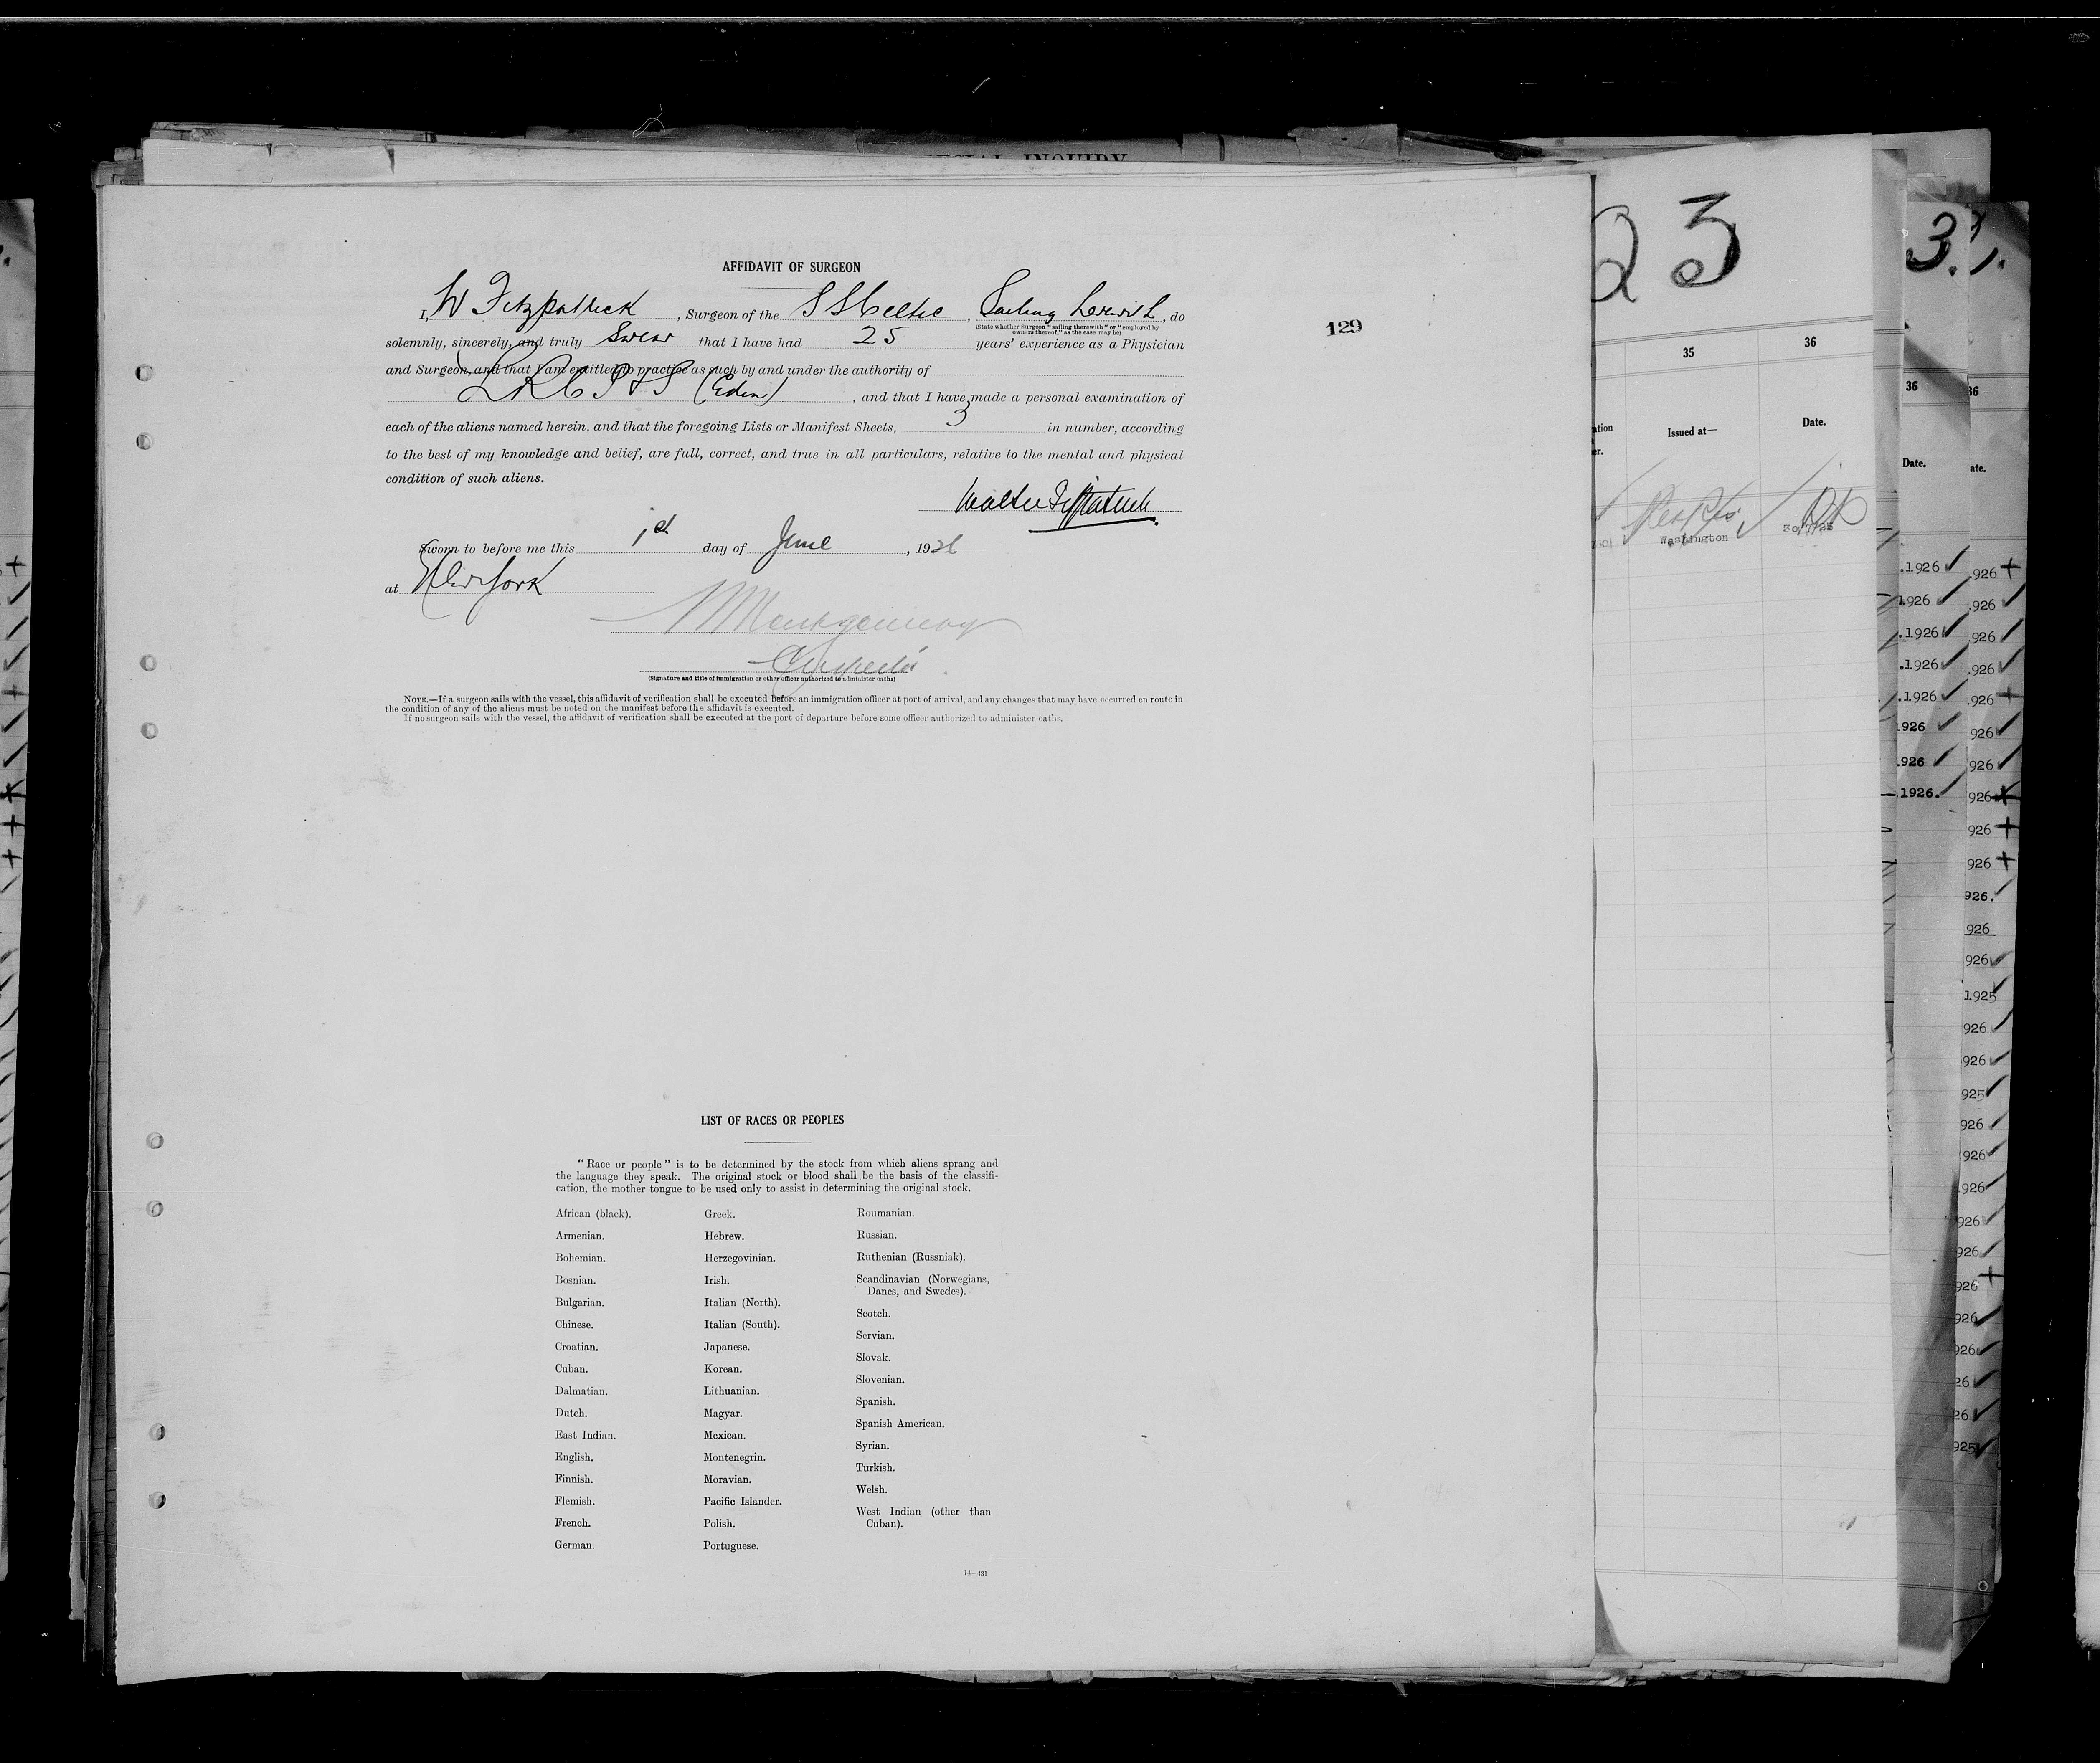 SPECIAL INQUIRY
AFFIDAVIT OF SURGEON
I, W Fitzpatrick, Surgeon of the S S Celtic, Sailing therewith, do
(State whether Surgeon "sailing therewith" or "employed by
owners thereof," as the case may be)
solemnly, sincerely, and truly Swear that I have had 25 years' experience as a Physician
and Surgeon, and that I am entitled to practice as such by and under the authority of
L R C P & S (Edin), and that I have made a personal examination of
each of the aliens named herein, and that the foregoing Lists or Manifest Sheets, 3 in number, according
to the best of my knowledge and belief, are full, correct, and true in all particulars, relative to the mental and physical
condition of such aliens.
Walter Fitzpatrick
Sworn to before me this 1st day of June, 1926
at New York
Montgomery
(Signature and title of immigration or other officer authorized to administer oaths)
NOTE.—If a surgeon sails with the vessel, this affidavit of verification shall be executed before an immigration officer at port of arrival, and any changes that may have occurred en route in
the condition of any of the aliens must be noted on the manifest before the affidavit is executed.
If no surgeon sails with the vessel, the affidavit of verification shall be executed at the port of departure before some officer authorized to administer oaths.
129
LIST OF RACES OR PEOPLES
"Race or people" is to be determined by the stock from which aliens sprang and
the language they speak. The original stock or blood shall be the basis of the classifi-
cation, the mother tongue to be used only to assist in determining the original stock.
African (black).
Armenian.
Bohemian.
Bosnian.
Bulgarian.
Chinese.
Croatian.
Cuban.
Dalmatian.
Dutch.
East Indian.
English.
Finnish.
Flemish.
French.
German.
Greek.
Hebrew.
Herzegovinian.
Irish.
Italian (North).
Italian (South).
Japanese.
Korean.
Lithuanian.
Magyar.
Mexican.
Montenegrin.
Moravian.
Pacific Islander.
Polish.
Portuguese.
Roumanian.
Russian.
Ruthenian (Russniak).
Scandinavian (Norwegians,
Danes, and Swedes).
Scotch.
Servian.
Slovak.
Slovenian.
Spanish.
Spanish American.
Syrian.
Turkish.
Welsh.
West Indian (other than
Cuban).
14—431
23
35
36
Issued at—
Date.
Washington
3.
36
Date.
.1926
1926
.1926
.1926
.1926
1926
926
1926.
36
ate.
926
926
926
926
926
926
926
926
926
926
926.
926
926
1925
926
926
925
926
926
926
926
926
926
926
926
26
26
925